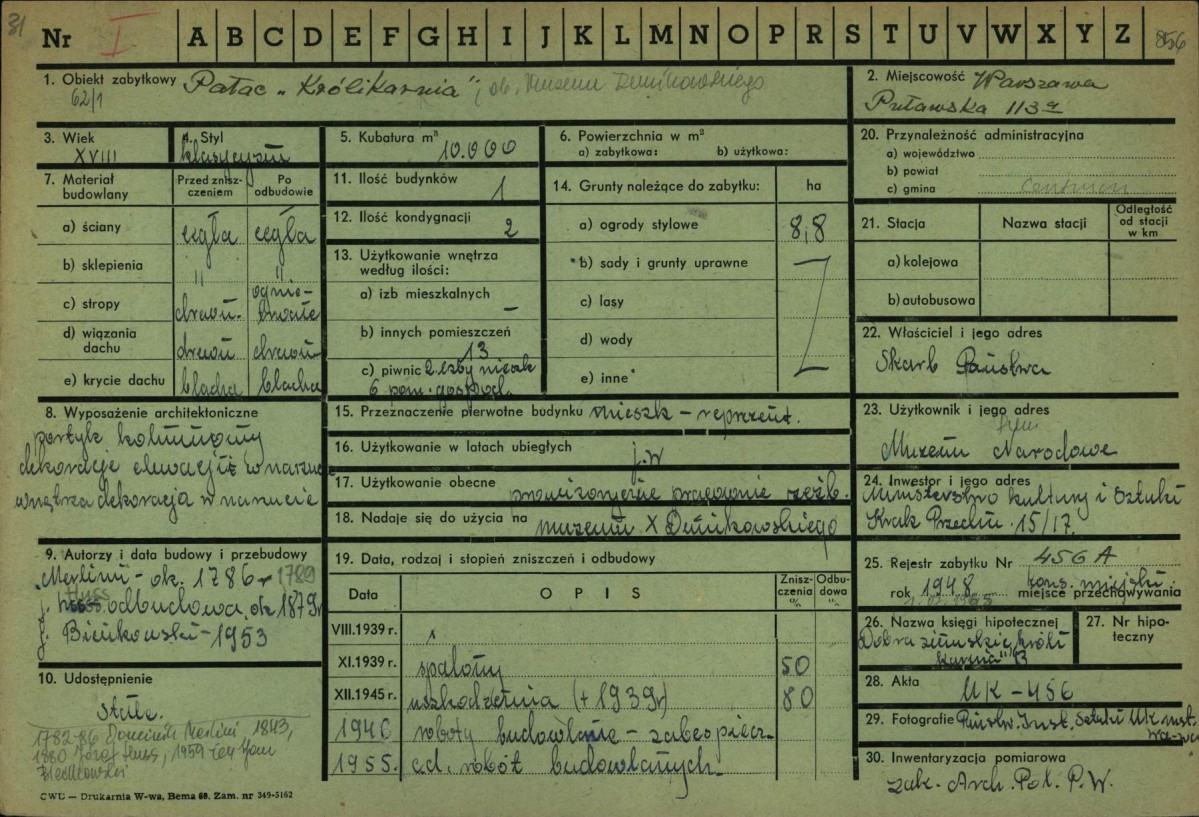 31
Nr I A B C D E F G H I J K L M N O P R S T U V W X Y Z 856
1. Obiekt zabytkowy Pałac „Królikarnia"; ob. Muzeum Dunikowskiego
62/1
2. Miejscowość Warszawa
Puławska 113a
3. Wiek
XVIII
4. Styl
klasycyzm
5. Kubatura m³ 10.000
6. Powierzchnia w m²
a) zabytkowa: b) użytkowa:
7. Materiał budowlany
Przed zniszczeniem
Po odbudowie
a) ściany cegła cegła
b) sklepienia " "
c) stropy drewn. ognio-
trwałe
d) wiązania dachu drewn drewn
e) krycie dachu blacha blacha
8. Wyposażenie architektoniczne
portyk kolumnowy
dekoracje elewacji w narzucie
wnętrza dekoracja w narzucie
9. Autorzy i data budowy i przebudowy
Merlini - ok. 1786 r 1789
J. Huss odbudowa, ok 1879r
J. Bieńkowski - 1953
10. Udostępnienie
Stałe.
1782-86 Dominik Merlini 1843,
1880 Józef Huss, 1959
11. Ilość budynków 1
12. Ilość kondygnacji 2
13. Użytkowanie wnętrza według ilości:
a) izb mieszkalnych –
b) innych pomieszczeń
13
c) piwnic 2 izby mieszk
6 pom. gospod.
14. Grunty należące do zabytku: ha
a) ogrody stylowe 8,8
b) sady i grunty uprawne
c) lasy
d) wody
e) inne
15. Przeznaczenie pierwotne budynku mieszk - reprezent.
16. Użytkowanie w latach ubiegłych j.w
17. Użytkowanie obecne prowizorycznie pracownie rzeźb.
18. Nadaje się do użycia na muzeum X Dunikowskiego
19. Data, rodzaj i stopień zniszczeń i odbudowy
Data OPIS Zniszczenia % Odbudowa %
VIII.1939 r.
XI.1939 r. spalony 50
XII.1945 r. uszkodzenia (+ 1939r) 80
1946 roboty budowlane - zabezpiecz.
1955. c.d. robót budowlanych
20. Przynależność administracyjna
a) województwo
b) powiat
c) gmina Centrum
21. Stacja Nazwa stacji Odległość od stacji w km
a) kolejowa
b) autobusowa
22. Właściciel i jego adres
Skarb Państwa
23. Użytkownik i jego adres
Muzeum Narodowe
24. Inwestor i jego adres
Ministerstwo Kultury i Sztuki
Krak Przedm. 15/17.
25. Rejestr zabytku Nr 456 A
rok 1948 kons. miejski
miejsce przechowywania
1.07.1965
26. Nazwa księgi hipotecznej
Dobra ziemskie „Króli
karnia" B
27. Nr hipoteczny
28. Akta UK - 456
29. Fotografie Państw. Inst. Sztuki
30. Inwentaryzacja pomiarowa
Zak. Arch. Pol. P.W.
CWD — Drukarnia W-wa, Bema 60. Zam. nr 349-5162